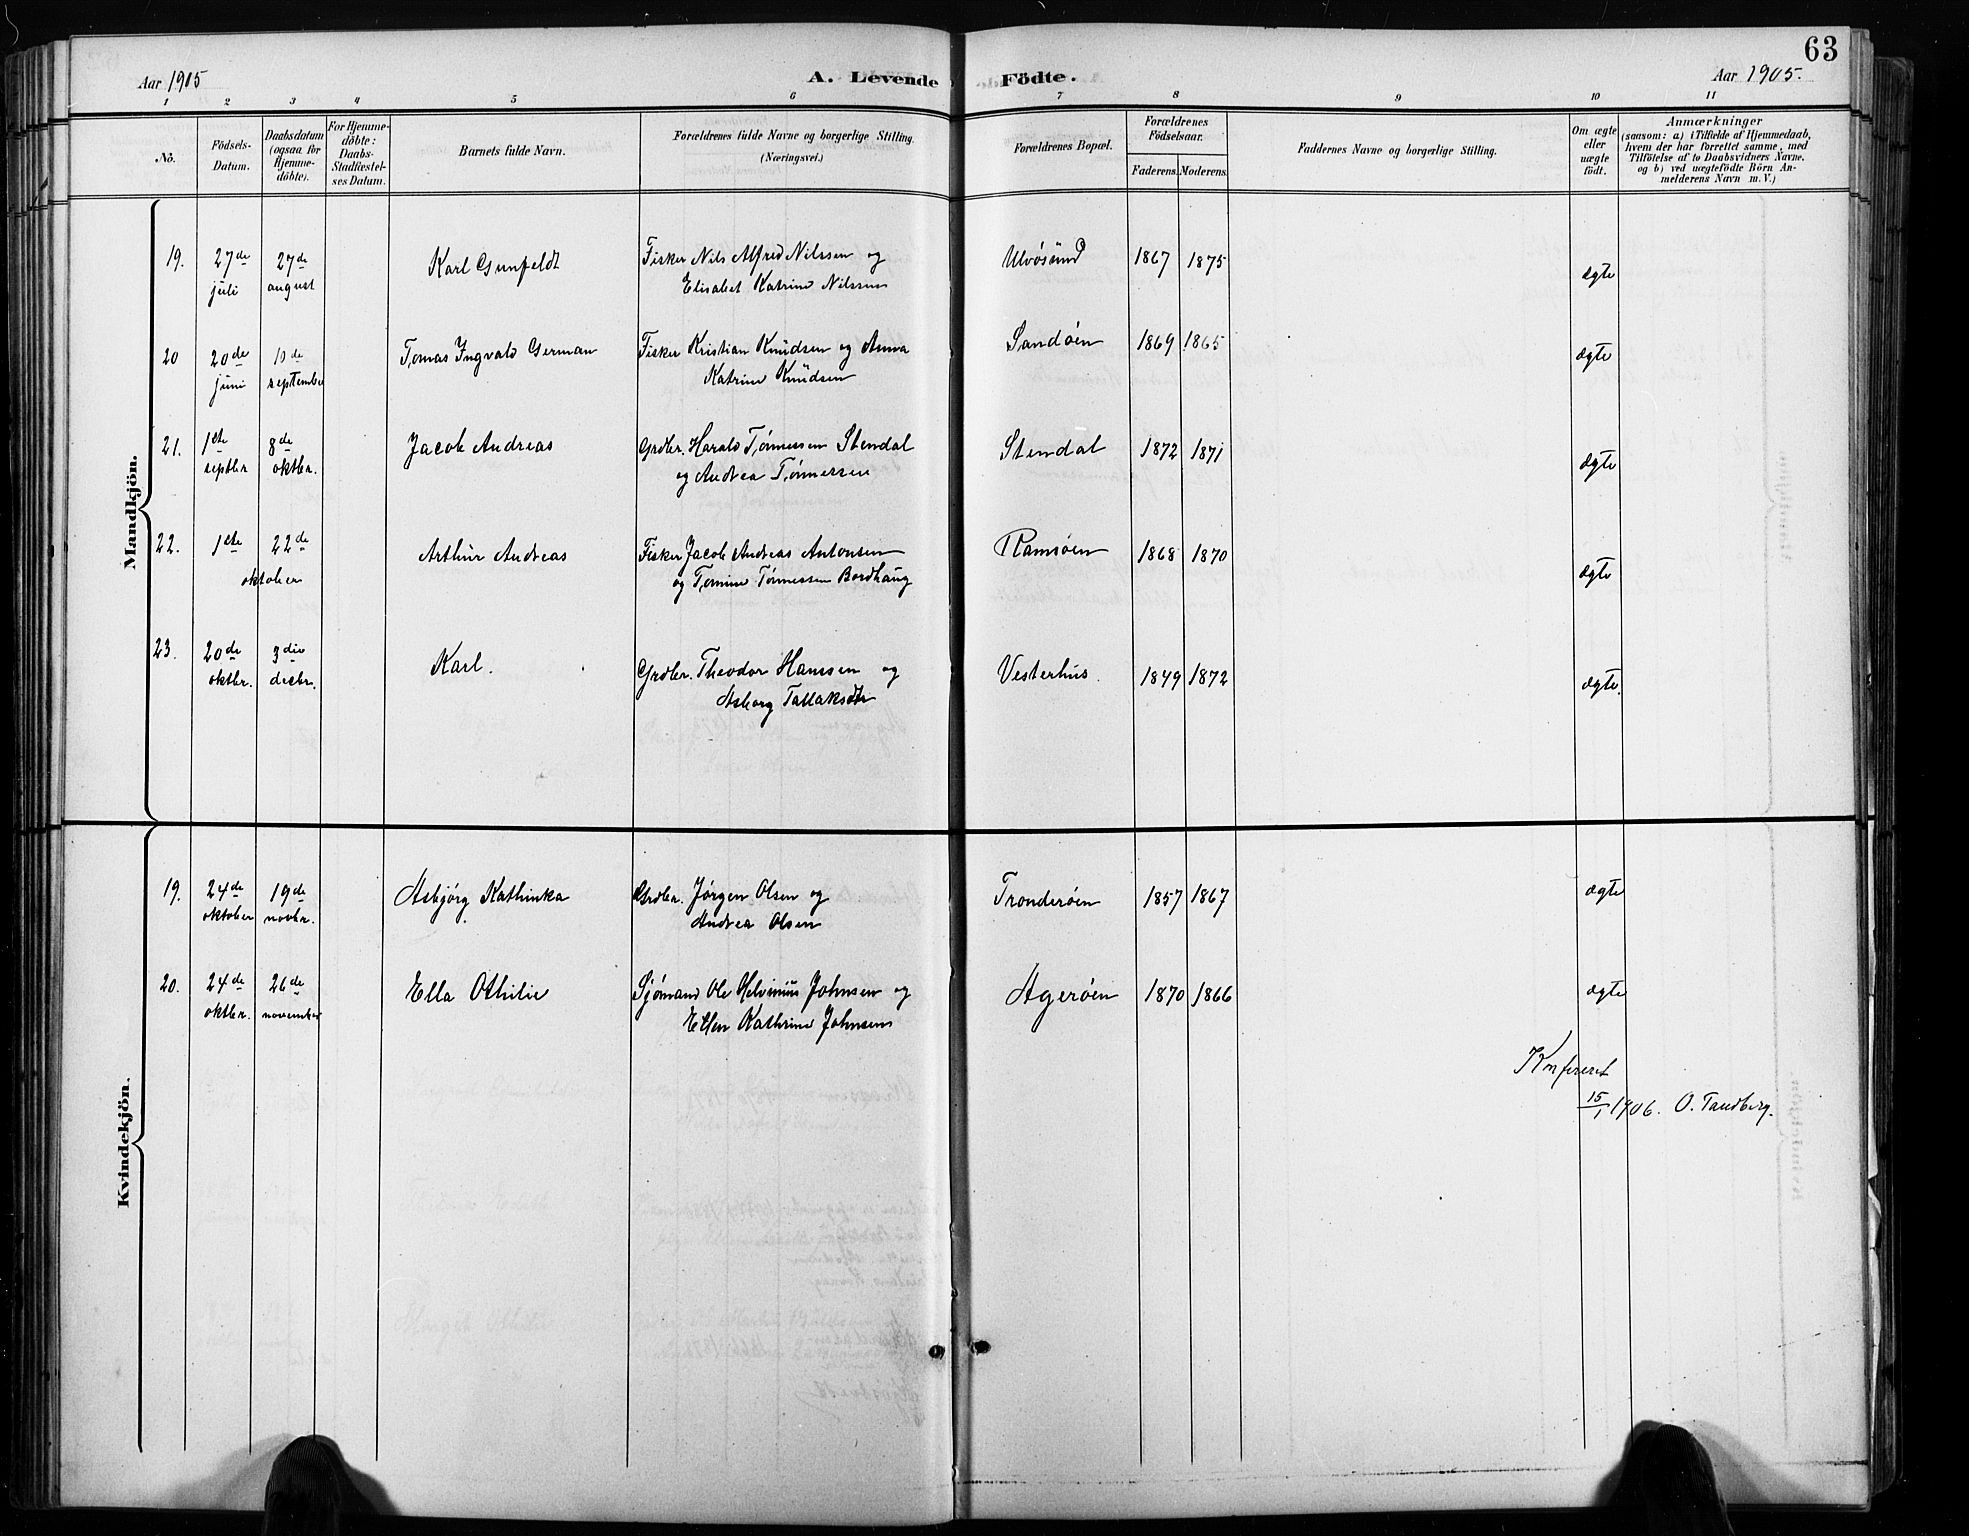 63
Aar 1905
A. Levende
Födte.
Aar 1905.
1 2 3 4 5 6 7 8 9 10 11
No.
Födsels-
Datum.
Daabsdatum
(ogsaa for
Hjemme-
döbte).
For Hjemme-
döbte:
Daabs-
Stadfæstel-
ses Datum.
Barnets fulde Navn.
Forældrenes fulde Navne og borgerlige Stilling.
(Næringsvei.)
Forældrenes Bopæl.
Forældrenes
Födselsaar.
Faderens. Moderens.
Faddernes Navne og borgerlige Stilling.
Om ægte
eller
uægte
födt.
Anmærkninger
(saasom: a) i Tilfælde af Hjemmedaab,
hvem der har forrettet samme, med
Tilföielse af to Daabsvidners Navne.
og b) ved uægtefödte Börn An-
melderens Navn m. V.)
Mandkjön.
19. 27de 27de Karl Gunfeldt Fisker Nils Alfred Nilssen og Ulvösund 1867 1875 ægte
juli august Elisabet Katrine Nilssen
20 20de 10de Tomas Ingvald German Fisker Kristian Knudsen og Anna Sandöen 1869 1865 ægte
juni september Katrine Knudsen
21. 1ste 8de Jacob Andreas Grdbr. Harald Tönnessen Stendal Stendal 1872 1871 ægte
septbr oktbr. og Andrea Tönnessen
22. 1ste 22de Arthur Andreas Fisker Jacob Andreas Antonsen Ramsöen 1868 1870 ægte
oktober og Tomine Tönnessen Bordhaug
23. 20de 3die Karl. Grdbr. Theodor Hanssen og Vesterhus. 1849 1872 ægte.
oktbr. decbr. Asborg Tallaksdtr
Kvindekjön.
19. 24de 19de Asbjörg Kathinka Grdbr. Jörgen Olsen og Tronderöen 1857 1867 ægte
oktober novbr. Andrea Olsen
20. 24de 26de Ella Othilie Sjömand Ole Helvinius Johnsen og Ageröen 1870 1866 ægte
oktbr. november Ellen Kathrine Johnsen
Konfereret
15/1 1906. O. Tandberg.